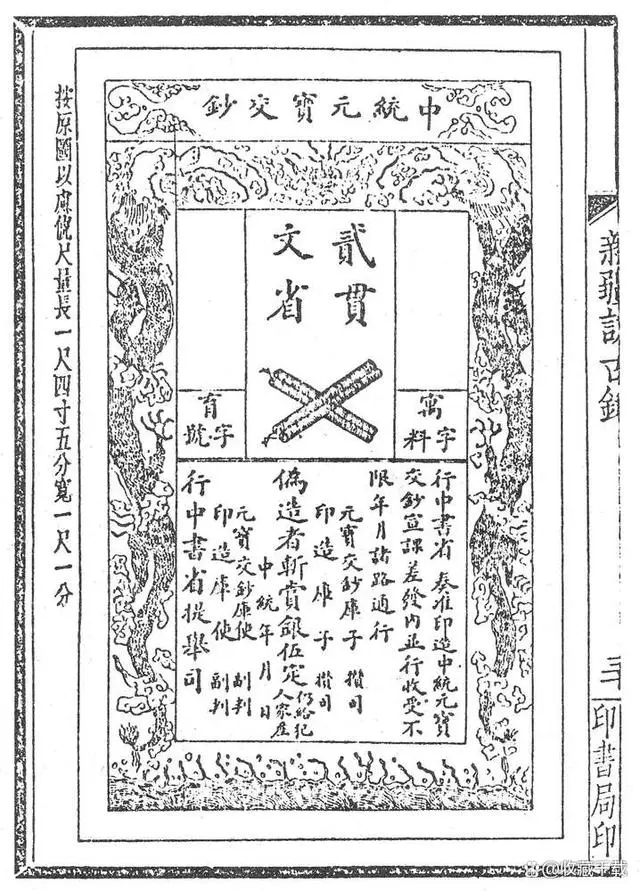 新疆訪古錄
印書局印
中統元寶交鈔
貳貫
文省
寓字料
字號
行中書省 奏准印造中統元寶
交鈔宣課差發内並行收受不
限年月諸路通行
元寶交鈔庫子 攢司
印造庫子 攢司
偽造者斬賞銀伍定 仍給犯人家産
中統 年 月 日
元寶交鈔庫使 副判
印造庫使 副判
行中書省提舉司
按原圖以慮俿尺量長一尺四寸五分寬一尺一分
@收藏千载